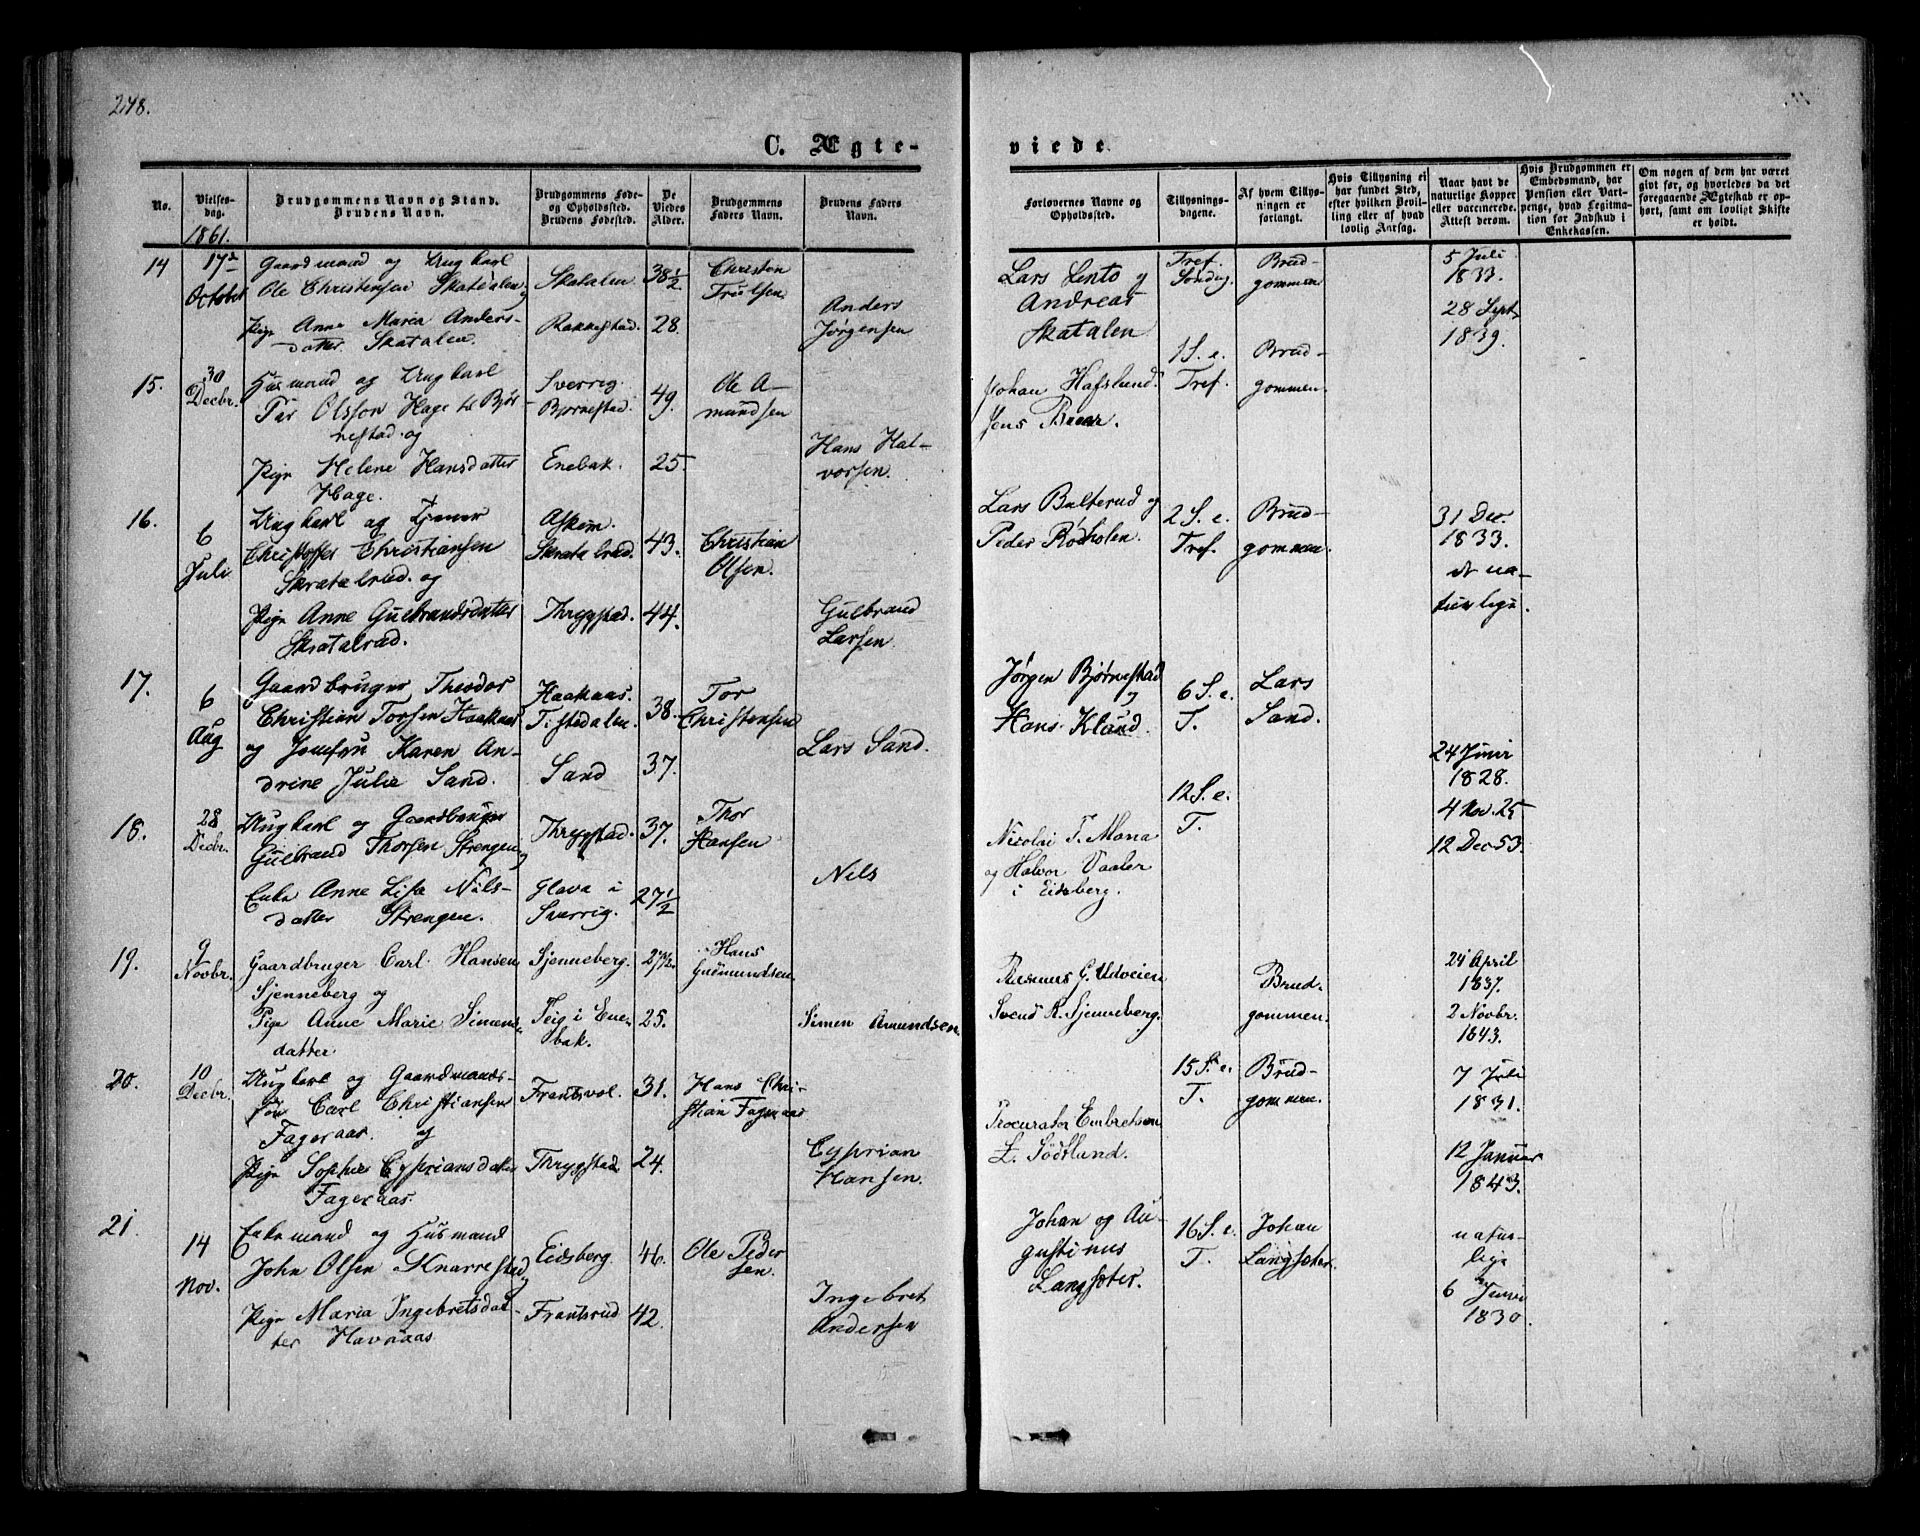 248.
C. Ægte-
viede
No.
Vielses-
dag.
1861.
Brudgommens Navn og Stand.
Brudens Navn.
Brudgommens Føde-
og Opholdssted.
Brudens Fødested.
De
Viedes
Alder.
Brudgommens
Faders Navn.
Brudens Faders
Navn.
Forlovernes Navne og
Opholdssted.
Tillysnings-
dagene.
Af hvem Tillys-
ningen er
forlangt.
Hvis Tillysning ei
har fundet Sted,
efter hvilken Bevil-
ling eller af hvad
lovlig Aarsag.
Naar havt de
naturlige Kopper
eller vaccinerede.
Attest derom.
Hvis Brudgommen er
Embedsmand, har
Pension eller Vart-
penge, hvad Legitma-
tion for Indskud i
Enkekassen.
Om nogen af dem har været
gift før, og hvorledes da det
foregaaende Ægteskab er op-
hørt, samt om lovligt Skifte
er holdt.
14
17de
October
Gaardmand og Ungkarl
Ole Christensen Skatalen og
Pige Anne Maria Anders-
datter Skatalen.
Skatalen
Rakkestad.
38 1/2
28.
Christen
Trulsen
Anders
Jørgensen
Lars Lento og
Andreas
Skatalen
Tref.
Søndag
Brud-
gommen
5 Juli
1833.
28 Sept.
1839.
15.
30
Decbr.
Husmand og Ungkarl
Par Olsson Hage til Bjør-
nestad og
Pige Helene Hansdatter
Hage.
Sverrig.
Bjørnestad.
Enebak.
49.
25.
Ole A-
mundsen
Hans Hal-
vorsen.
Johan Hafslund.
Jens Braar.
1 S. e.
Tref.
Brud-
gommen.
16.
6
Juli
Ungkarl og
Christoffer Christiansen
Skratalrud og
Pige Anne Gulbrandsdatter
Skratalrud.
Askim.
Skratalrud.
Thrygstad.
43.
44.
Christian
Olsen.
Gulbrand
Larsen
Lars Bulterud og
Peder Rødholen.
2 S. e.
Tref.
Brud-
gommen.
31 Dec.
1833.
de na-
turlige.
17.
6
Aug
Gaardbruger Theodor
Christian Torsen Haakaas
og Jomfru Karen An-
drine Julie Sand.
Haakaas.
Tistedalen.
Sand
38.
37.
Tor
Christensen
Lars Sand.
Jørgen Bjørnestad
og
Hans Klund.
6 S. e.
T.
Lars
Sand.
24 Juni
1828.
18.
28
Decbr.
Ungkarl og Gaardbruger
Gulbrand Thorsen Strengen og
Enke Anne Lisa Nils-
datter Strengen.
Thrygstad.
Glava i
Sverrig.
37.
27 1/2
Thor
Hansen
Nils
Nicolai T. Mona
og Halvor Vaaler
i Eidsberg.
12 S. e.
T.
4 Nov. 25
12 Dec 53.
19.
9
Novbr.
Gaardbruger Carl Hansen
Sjenneberg og
Pige Anne Marie Simens-
datter
Sjenneberg.
Teig i Ene-
bak.
27 1/2.
25.
Hans
Gudmundsen.
Simen Amundsen.
Rasmus G. Udveien
Svend R. Sjenneberg.
Brud-
gommen.
24 April
1837.
2 Novbr.
1843.
20.
10
Decbr.
Ungkarl og Gaardmands-
søn Carl Christiansen
Fageraas. og
Pige Sophie Cypriansdatter
Fageraas.
Frantsvol.
Thrygstad
31.
24.
Hans Chri-
stian Fageraas
Cyprian
Hansen.
Procurator Embretsen
L. Södtlund.
15 S. e.
T.
Brud-
gommen.
7 Juli
1831.
12 Januar
1843.
21.
14
Nov.
Enkemand og Husmand
John Olsen Knarrestad og
Pige Maria Ingebretsdat-
ter Havnaas
Eidsberg
Frantsrud
46.
42.
Ole Peder
sen.
Ingebret
Andersen
Johan og Au-
gustinus
Langsæter.
16 S. e.
T.
Johan
Langsæter.
natur-
lige
6 Juni
1830.